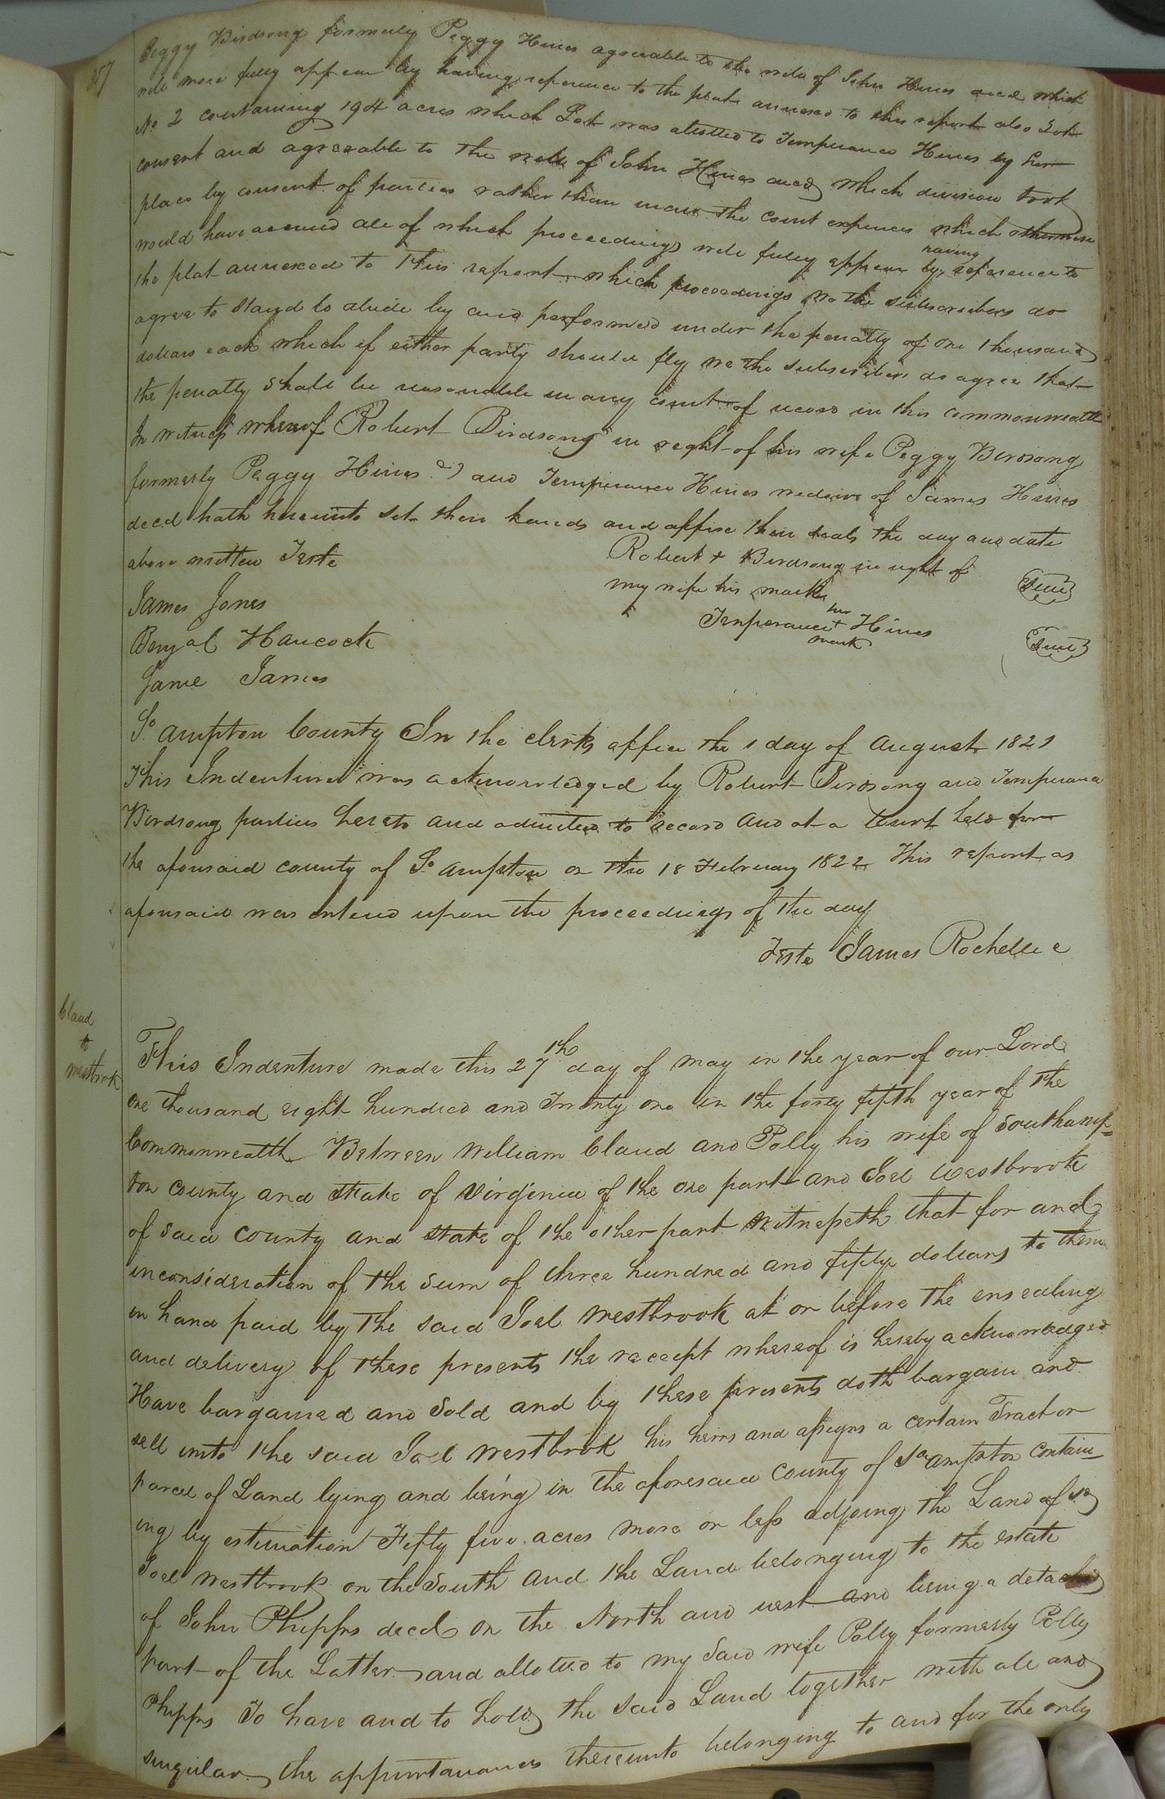 357
Peggy Birdsong formerly Peggy Hines agreeable to the will of John Hines decd which
will more fully appear by having reference to the plat annexed to this report also Lot
No 2 containing 194 acres which Lot was alotted to Temperance Hines by her
consent and agreeable to the will of John Hines decd which division took
place by consent of parties rather than incur the court expences which otherwise
would have accrued all of which proceedings will fully appear by having reference to
the plat annexed to this report which proceedings we the subscribers do
agree to stand to abide by and performed under the penalty of one thousand
dollars each which if either party should fly we the subscribers do agree that
the penalty shall be recoverable in any court of record in this commonwealth
In witness whereof Robert Birdsong in right of his wife Peggy Birdsong
formerly Peggy Hines and Temperance Hines widow of James Hines
decd hath hereunto set their hands and affixe their seals the day and date
above written Teste
Robert + Birdsong in right of
my wife his mark Seal
James Jones
Temperance her + mark Hines Seal
Benja C Hancock
Jane James
So ampton County In the clerks office the 1 day of August 1821
This Indenture was acknowledged by Robert Birdsong and Temperance
Birdsong parties hereto and admitted to record and at a Court held for
the aforesaid county of So ampton on the 18 February 1822 This report as
aforesaid was entered upon the proceedings of the day
Teste James Rochelle c
Claud
to
Westbrook
This Indenture made this 27th day of may in the year of our Lord
one thousand eight hundred and Twenty one in the forty fifth year of the
Commonwealth Between William Claud and Polly his wife of Southamp-
ton county and State of Virginia of the one part and Joel Westbrook
of said county and state of the other part witnesseth that for and
inconsideration of the sum of three hundred and fifty dollars to them
in hand paid by the said Joel Westbrook at or before the ensealing
and delivery of these presents the receipt whereof is hereby acknowledged
Have bargained and Sold and by these presents doth bargain and
sell unto the said Joel Westbrook his heirs and assigns a certain Tract or
parcel of Land lying and being in the aforesaid county of So ampton contain-
ing by estimation Fifty five acres more or less adjoing the Land of sd
Joel Westbrook on the South and the Land belonging to the estate
of John Phipps decd on the North and west and being a detached
part of the Latter and allotted to my said wife Polly formerly Polly
Phipps To have and to hold the said Land together with all and
singular the appurtanances thereunto belonging to and for the only